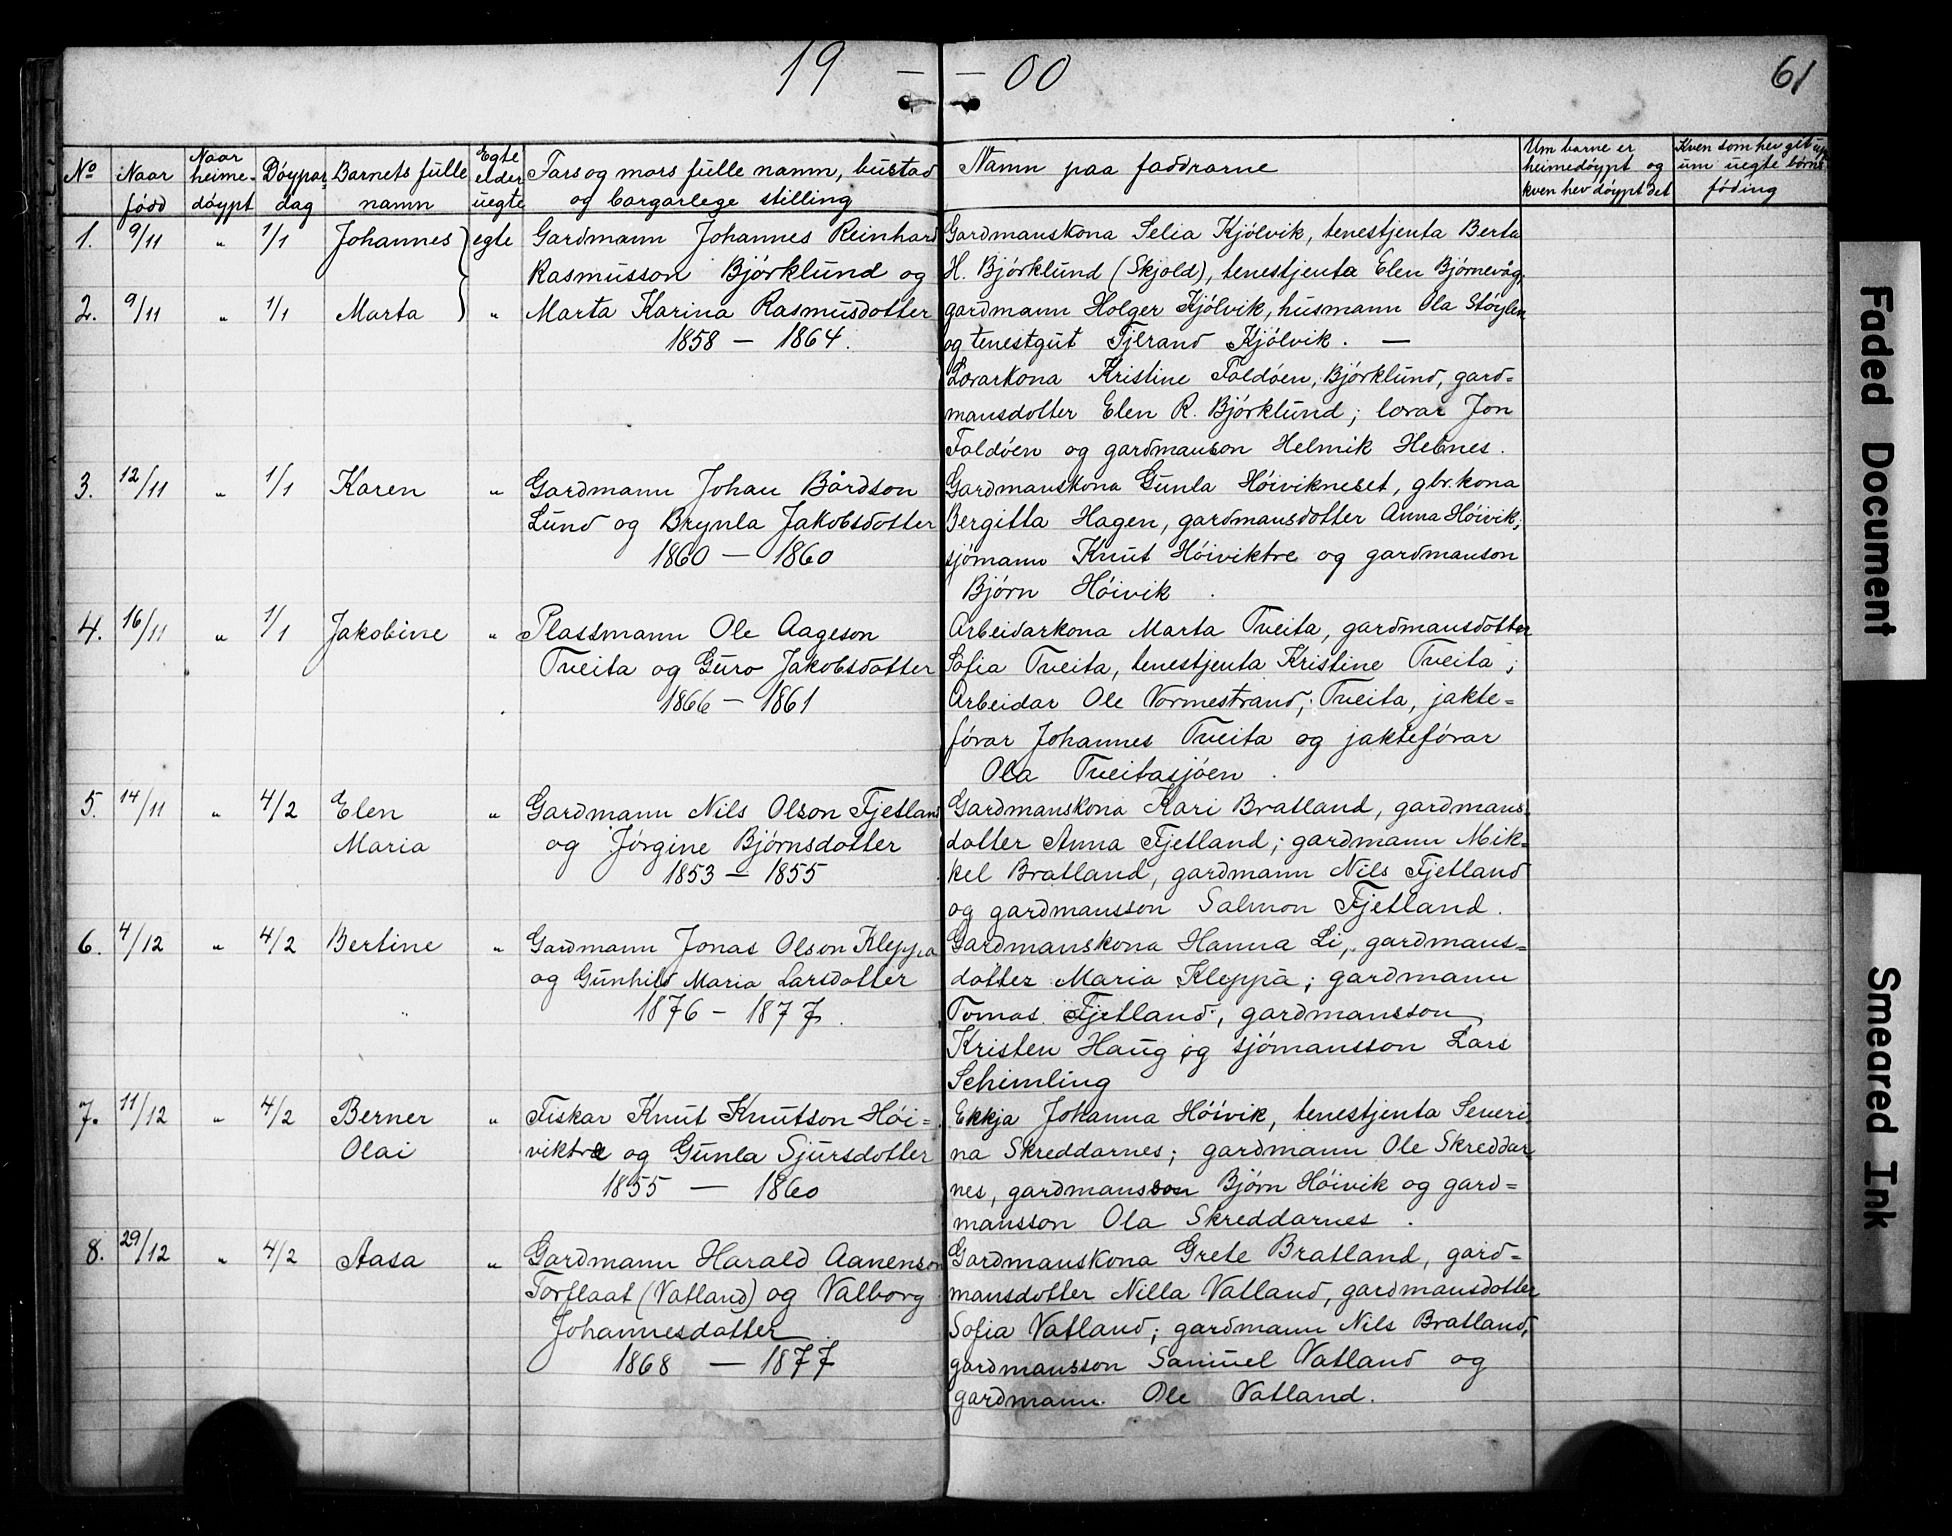 19 — — 00
61
No
Naar fødd
Naar heime-døypt
Døypar dag
Barnets fulle namn
Egte elder uegte
Fars og mors fulle namn, bustad og borgarlege stilling
Namn paa faddrarne
Um barne er heimedøypt og kven hev døypt det
Kven som hev git upp um uegte børns føding
1. 9/11 " 1/1 Johannes egte Gardmann Johannes Reinhard
Rasmusson Bjórklund og
2. 9/11 " 1/1 Marta " Marta Karina Rasmusdotter
1858 — 1864.
Gardmanskona Selia Kjólvik, tenestjenta Berta
H. Bjórklund (Skjold), tenestjenta Elen Bjórnevåg,
gardmann Holger Kjólvik, husmann Ola Stóylen
og tenestgut Tjerand Kjólvik. —
Lærarkona Kristine Foldóen, Bjórklund, gard=
mansdotter Elen R. Bjórklund; lærar Jon
Foldóen og gardmanson Helmik Hebnes.
3. 12/11 " 1/1 Karen " Gardmann Johan Bårdson
Lund og Brynla Jakobsdotter
1860 — 1860
Gardmanskona Gunla Hóivikneset, gbr.kona
Bergitta Hagen, gardmansdotter Anna Hóivik;
sjómann Knut Hóiviktre og gardmanson
Bjórn Hóivik.
4. 16/11 " 1/1 Jakobine " Plassmann Ole Aageson
Tveita og Guro Jakobsdotter
1866 — 1861
Arbeidarkona Marta Tveita, gardmansdotter
Sofia Tveita, tenestjenta Kristine Tveita;
Arbeidar Ole Vormestrand, Tveita, jakte=
fórar Johannes Tveita og jaktefórar
Ola Tveitasjóen.
5. 14/11 " 4/2 Elen Maria " Gardmann Nils Olson Fjetland
og Jórgine Bjórnsdotter
1853 — 1855
Gardmanskona Kari Bratland, gardmans-
dotter Anna Fjetland; gardmann Mik=
kel Bratland, gardmann Nils Fjetland
og gardmansson Salmon Fjetland.
6. 4/12 " 4/2 Bertine " Gardmann Jonas Olson Kleppa
og Gunhild Maria Larsdotter
1876 — 1877.
Gardmanskona Hanna Li, gardmans=
dotter Maria Kleppa; gardmann
Tomas Fjetland, gardmansson
Kristen Haug og sjómansson Lars
Schimling
7. 11/12 " 4/2 Berner Olai " Fiskar Knut Knutson Hói=
viktre og Gunla Sjursdotter
1855 — 1860
Ekkja Johanna Hóivik, tenestjenta Severi-
na Skreddarnes; gardmann Ole Skreddar-
nes, gardmansson Bjórn Hóivik og gard=
mansson Ola Skreddarnes.
8. 29/12 " 4/2 Aasa " Gardmann Harald Aanenson
Torflaat (Vatland) og Valborg
Johannesdotter.
1868 — 1877
Gardmanskona Grete Bratland, gard=
mansdotter Nilla Vatland, gardmansdotter
Sofia Vatland; gardmann Nils Bratland,
gardmansson Samuel Vatland og
gardmann Ole Vatland.
Faded Document
Smeared Ink